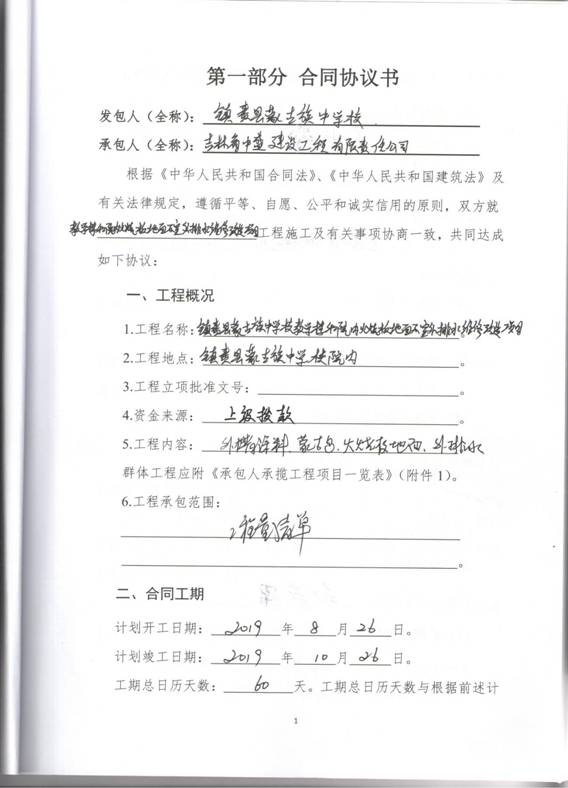 第一部分 合同协议书
发包人（全称）：镇赉县蒙古族中学校
承包人（全称）：吉林省中建设工程有限责任公司
根据《中华人民共和国合同法》、《中华人民共和国建筑法》及
有关法律规定，遵循平等、自愿、公平和诚实信用的原则，双方就
工程施工及有关事项协商一致，共同达成
如下协议：
一、工程概况
1.工程名称：镇赉县蒙古族中学校教学楼和院内火烧板地面及室外排水维修改造项目
2.工程地点：镇赉县蒙古族中学校院内。
3.工程立项批准文号：。
4.资金来源：上级拨款。
5.工程内容：外墙涂料、蒙古包、火烧板地面、外排水
群体工程应附《承包人承揽工程项目一览表》（附件1）。
6.工程承包范围：
工程量清单
。
二、合同工期
计划开工日期：2019年8月26日。
计划竣工日期：2019年10月26日。
工期总日历天数：60天。工期总日历天数与根据前述计
1